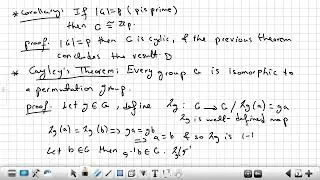 * Corollary: If |G|=p (p is prime)
then G ≅ ℤp.
proof. |G|=p then G is cyclic, & the previous theorem
concludes the result □
* Cayley's Theorem: Every group G is isomorphic to
a permutation group.
proof. Let g ∈ G, define λg: G → G / λg(a) = ga
λg is well-defined map
λg(a) = λg(b) ⇒ ga = gb
⇒ a = b & so λg is 1-1
Let b ∈ G then g⁻¹b ∈ G. λg(g⁻¹